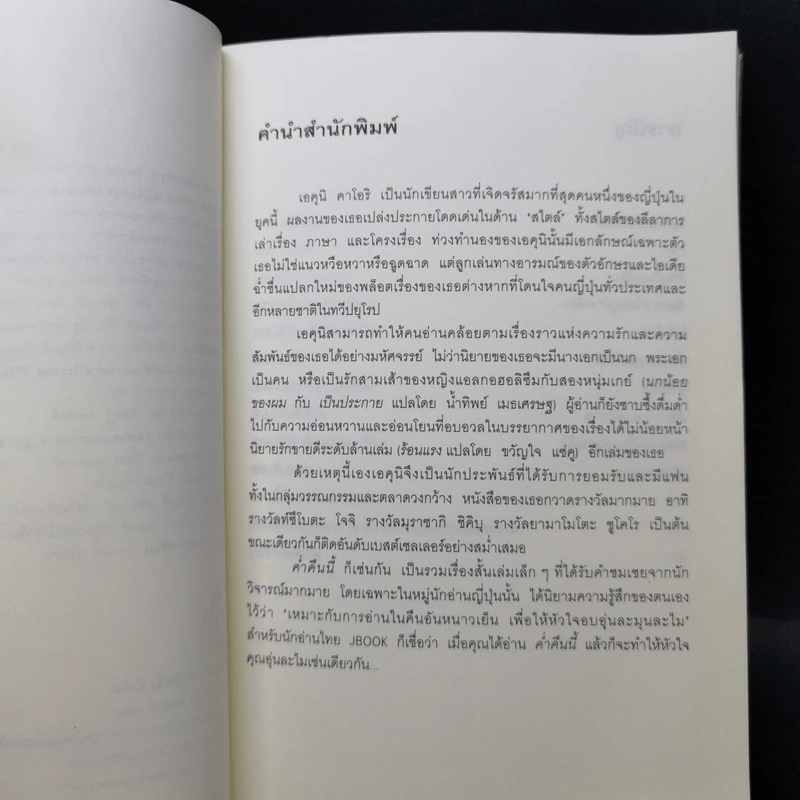 คำนำสำนักพิมพ์
เอคุนิ คาโอริ เป็นนักเขียนสาวที่เจิดจรัสมากที่สุดคนหนึ่งของญี่ปุ่นใน
ยุคนี้ ผลงานของเธอเปล่งประกายโดดเด่นในด้าน ‘สไตล์’ ทั้งสไตล์ของลีลาการ
เล่าเรื่อง ภาษา และโครงเรื่อง ท่วงทำนองของเอคุนินั้นมีเอกลักษณ์เฉพาะตัว
เธอไม่ใช่แนวหวือหวาหรือฉูดฉาด แต่ลูกเล่นทางอารมณ์ของตัวอักษรและไอเดีย
ฉ่ำชื่นแปลกใหม่ของพล็อตเรื่องของเธอต่างหากที่โดนใจคนญี่ปุ่นทั่วประเทศและ
อีกหลายชาติในทวีปยุโรป
เอคุนิสามารถทำให้คนอ่านคล้อยตามเรื่องราวแห่งความรักและความ
สัมพันธ์ของเธอได้อย่างมหัศจรรย์ ไม่ว่านิยายของเธอจะมีนางเอกเป็นนก พระเอก
เป็นคน หรือเป็นรักสามเส้าของหญิงแอลกอฮอลิซึมกับสองหนุ่มเกย์ (นกน้อย
ของผม กับ เป็นประกาย แปลโดย น้ำทิพย์ เมธเศรษฐ) ผู้อ่านก็ยังซาบซึ้งดื่มด่ำ
ไปกับความอ่อนหวานและอ่อนโยนที่อบอวลในบรรยากาศของเรื่องได้ไม่น้อยหน้า
นิยายรักขายดีระดับล้านเล่ม (ร้อนแรง แปลโดย ขวัญใจ แซ่คู) อีกเล่มของเธอ
ด้วยเหตุนี้เองเอคุนิจึงเป็นนักประพันธ์ที่ได้รับการยอมรับและมีแฟน
ทั้งในกลุ่มวรรณกรรมและตลาดวงกว้าง หนังสือของเธอกวาดรางวัลมากมาย อาทิ
รางวัลทัซึโบตะ โจจิ รางวัลมุราซากิ ชิคิบุ รางวัลยามาโมโตะ ชูโคโร เป็นต้น
ขณะเดียวกันก็ติดอันดับเบสต์เซลเลอร์อย่างสม่ำเสมอ
ค่ำคืนนี้ ก็เช่นกัน เป็นรวมเรื่องสั้นเล่มเล็ก ๆ ที่ได้รับคำชมเชยจากนัก
วิจารณ์มากมาย โดยเฉพาะในหมู่นักอ่านญี่ปุ่นนั้น ได้นิยามความรู้สึกของตนเอง
ไว้ว่า ‘เหมาะกับการอ่านในคืนอันหนาวเย็น เพื่อให้หัวใจอบอุ่นละมุนละไม’
สำหรับนักอ่านไทย JBOOK ก็เชื่อว่า เมื่อคุณได้อ่าน ค่ำคืนนี้ แล้วก็จะทำให้หัวใจ
คุณอุ่นละไมเช่นเดียวกัน...